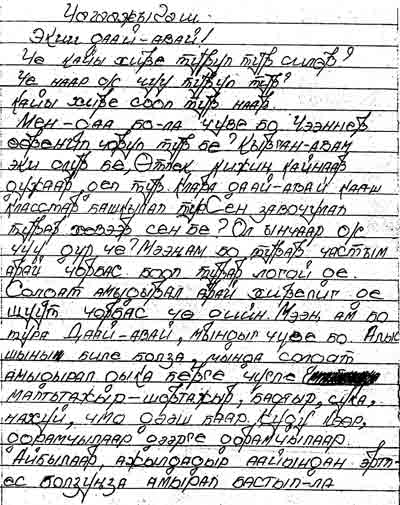 Чанажыгаш.
Экии даай-авай!
Че кайы хире туруп тур силер?
Че наар ок чуу туруп тур?
Кайы хире соол тур наар.
Мен-даа бо-ла чуве бо чээннер
өөренип чоруп тур бе? Кырган-авам
эки олур бе,
дужаар деп тур Клара даай-авай кааш
класстар башкылап тур Сен завочулап
турар хевээр сен бе? Ол ынчаар ок
чуу дур че? Мээнам бо турар частым
арай чорбас боор турар логой де.
Солдат амыдырал арай хирелиг де
шуут чорбас че дийн. Мээң ам бо
тура Даай-авай, мындыг чуве бо. Алыс
шыны биле болза, мында солдат
амыдырал дыка берге чуве
малтажыр-шортажыр, сука,
нахуй, что дээш баар. Кудук кээр,
дорамчылаар дээрге дорамчылаар.
Айбылаар, ажылдадыр аайындан эрт-
пес болзуңза амырап бастып-ла